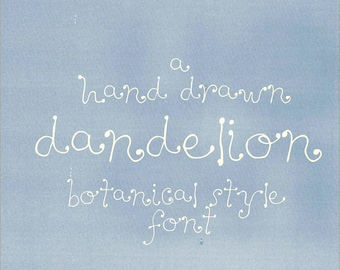 a
hand drawn
dandelion
botanical style
font